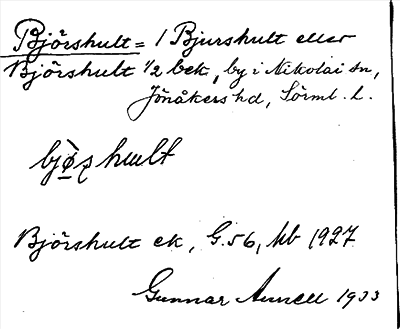 Björshult = / Bjurshult eller
Björshult ½ bek, by i Nikolai sn,
Jönåkers hd, Sörml. l.
bjø̀ʂhult
Björshult ek, G.56, Mb 1927
Gunnar Annell 1933